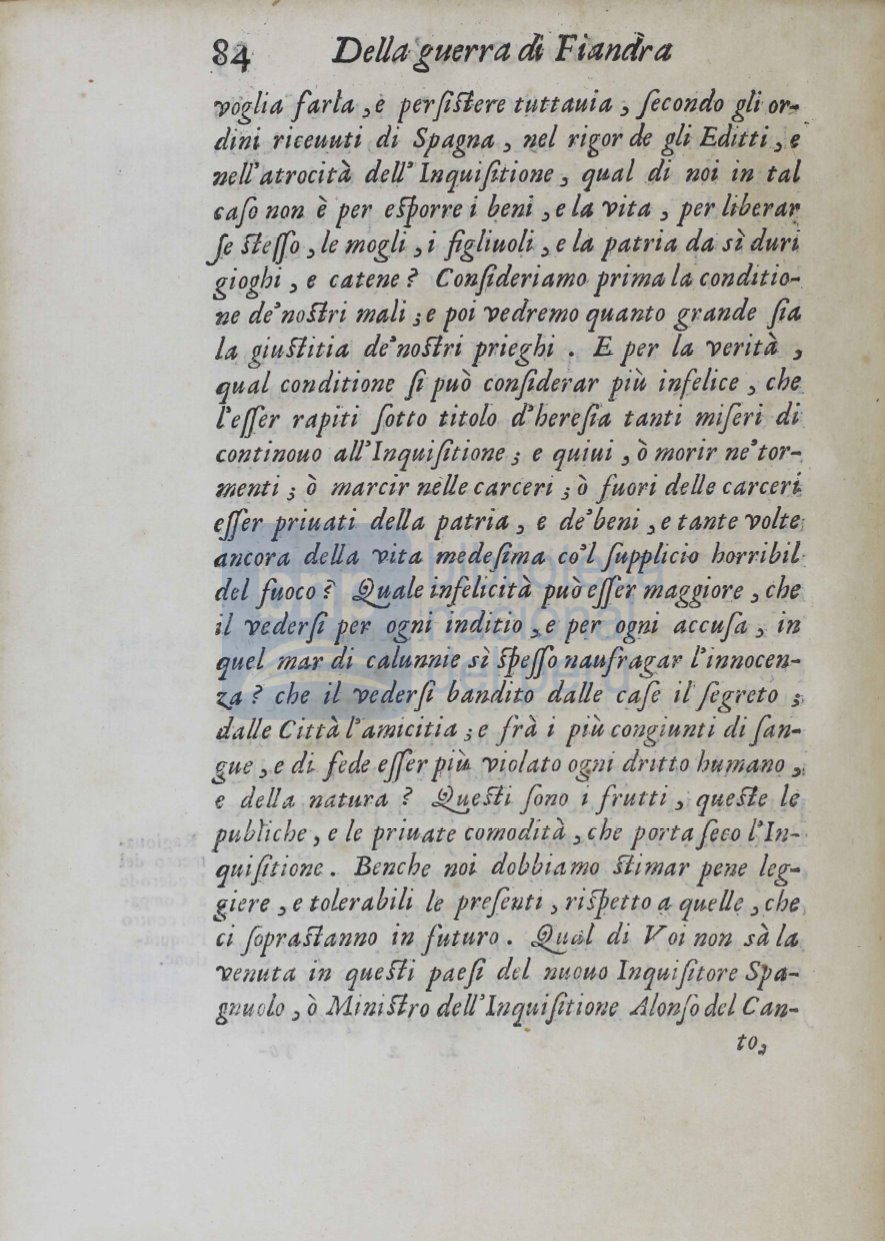 84 Della guerra di Fiandra
voglia farla, e perſiſtere tuttauia, ſecondo gli or-
dini riceuuti di Spagna, nel rigor de gli Editti, e
nell'atrocità dell' Inquiſitione, qual di noi in tal
caſo non è per eſporre i beni, e la vita, per liberar
ſe ſteſſo, le mogli, i figliuoli, e la patria da sì duri
gioghi, e catene? Conſideriamo prima la conditio-
ne de'noſtri mali; e poi vedremo quanto grande ſia
la giuſtitia de'noſtri prieghi. E per la verità,
qual conditione ſi può conſiderar più infelice, che
l'eſſer rapiti ſotto titolo d'hereſia tanti miſeri di
continouo all'Inquiſitione; e quiui, ò morir ne'tor-
menti; ò marcir nelle carceri; ò fuori delle carceri
eſſer priuati della patria, e de'beni, e tante volte
ancora della vita medeſima co'l ſupplicio horribil
del fuoco? Quale infelicità può eſſer maggiore, che
il vederſi per ogni inditio, e per ogni accuſa, in
quel mar di calunnie sì ſpeſſo naufragar l'innocen-
za? che il vederſi bandito dalle caſe il ſegreto;
dalle Città l'amicitia; e frà i più congiunti di ſan-
gue, e di fede eſſer più violato ogni dritto humano,
e della natura? Queſti ſono i frutti, queſte le
publiche, e le priuate comodità, che porta ſeco l'In-
quiſitione. Benche noi dobbiamo ſtimar pene leg-
giere, e tolerabili le preſenti, riſpetto a quelle, che
ci ſopraſtanno in futuro. Qual di Voi non sà la
venuta in queſti paeſi del nuouo Inquiſitore Spa-
gnuolo, ò Miniſtro dell'Inquiſitione Alonſo del Can-
to,